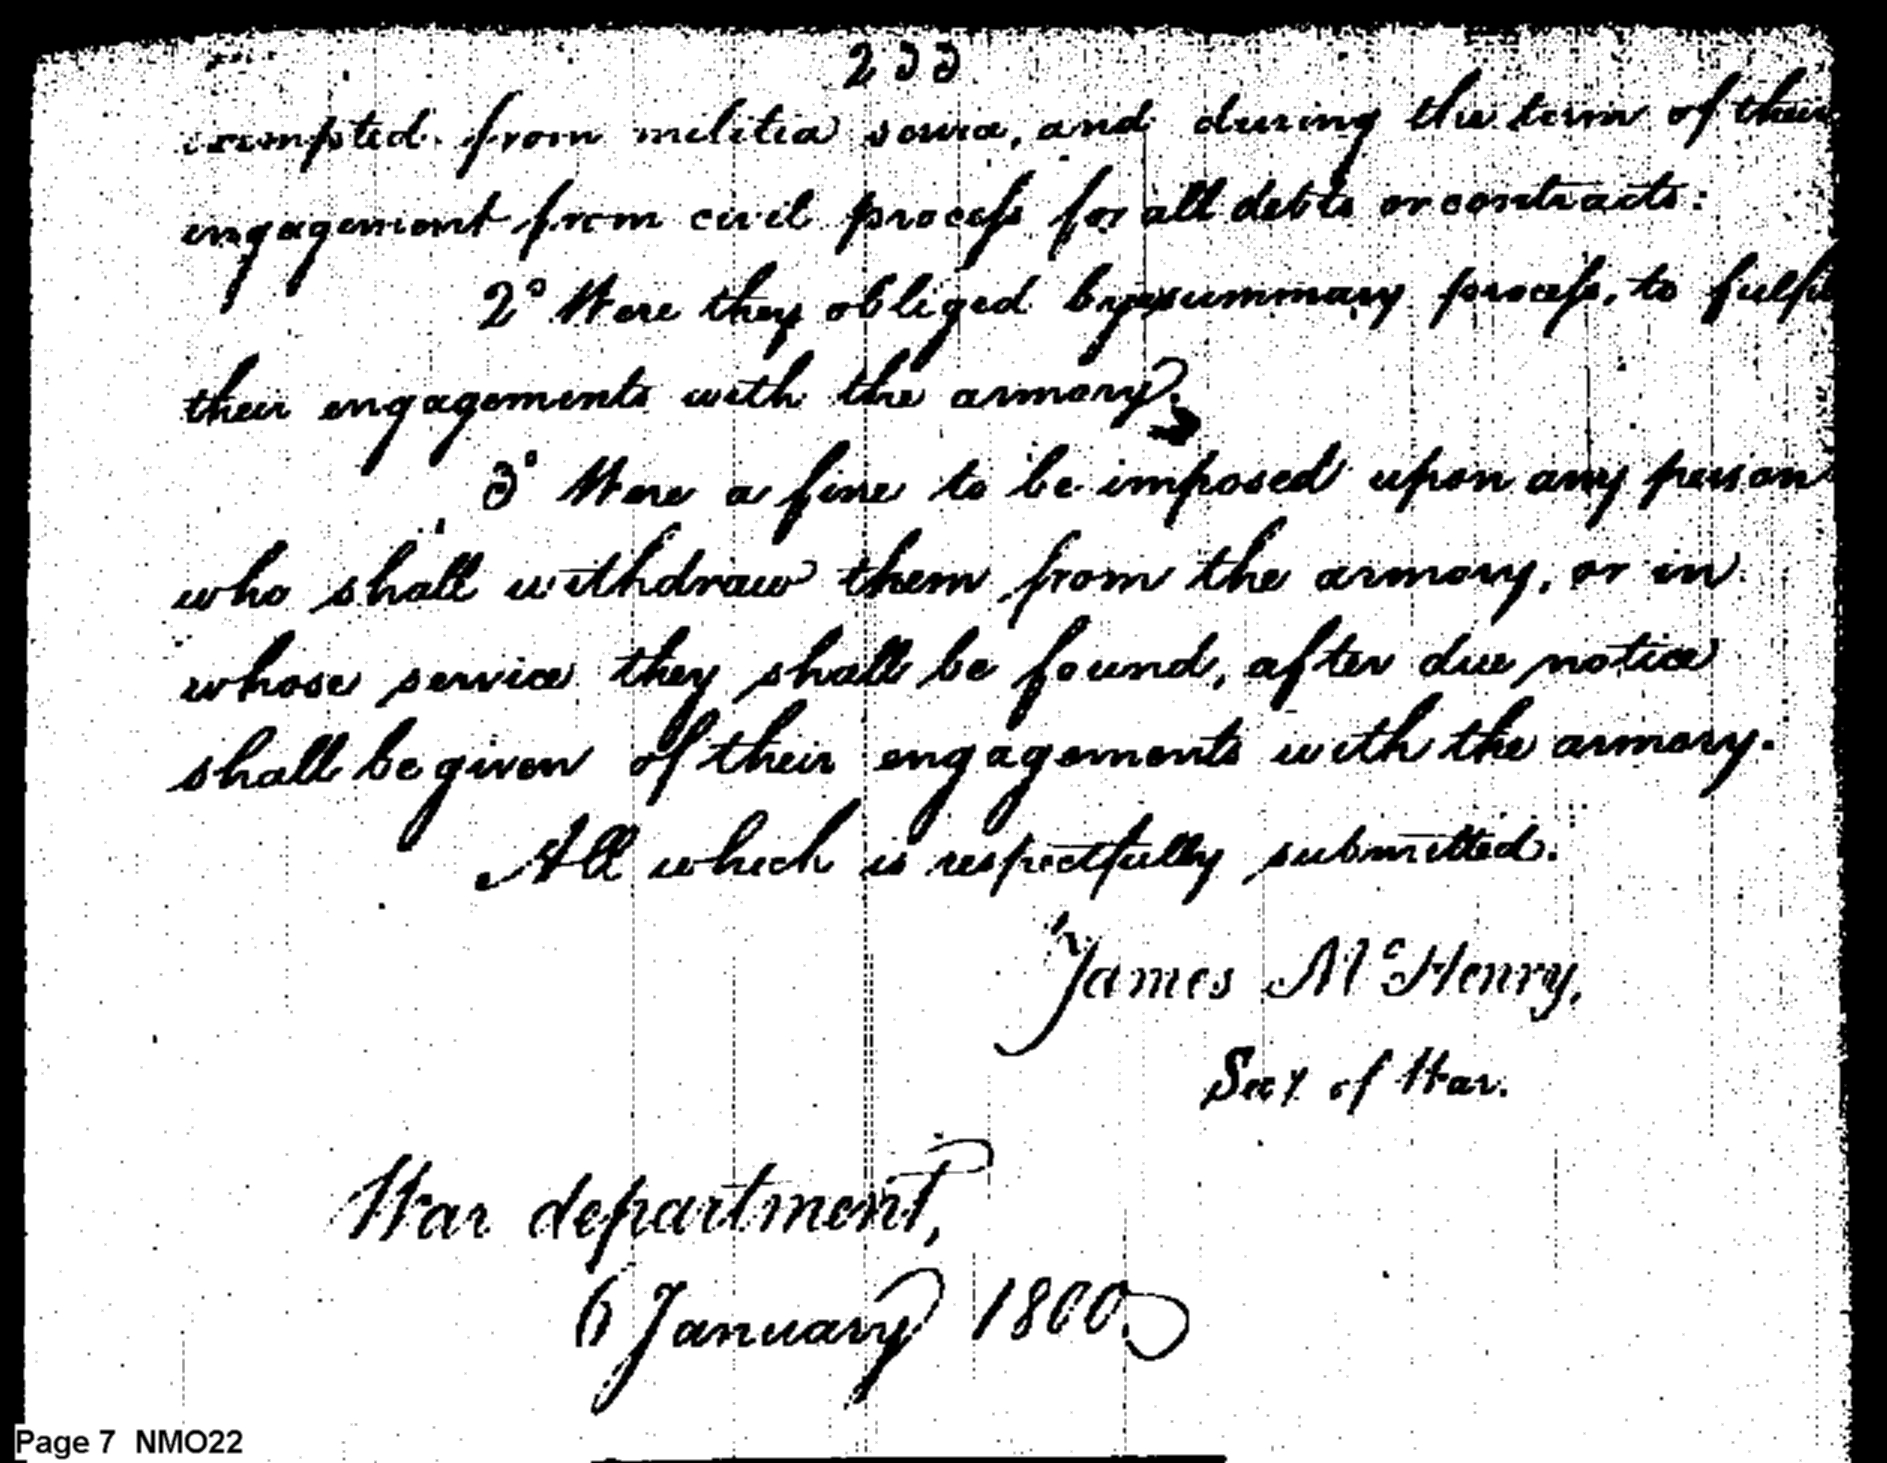 233
exempted from militia service, and during the term of their
engagement from civil process for all debts or contracts:
2° Were they obliged by summary process, to fulfil
their engagements with the armory.
3° Were a fine to be imposed upon any person
who shall withdraw them from the armory, or in
whose service they shall be found, after due notice
shall be given of their engagements with the armory.
All which is respectfully submitted.
James McHenry,
Secy of War.
War department,
6 January 1800.
Page 7 NMO22